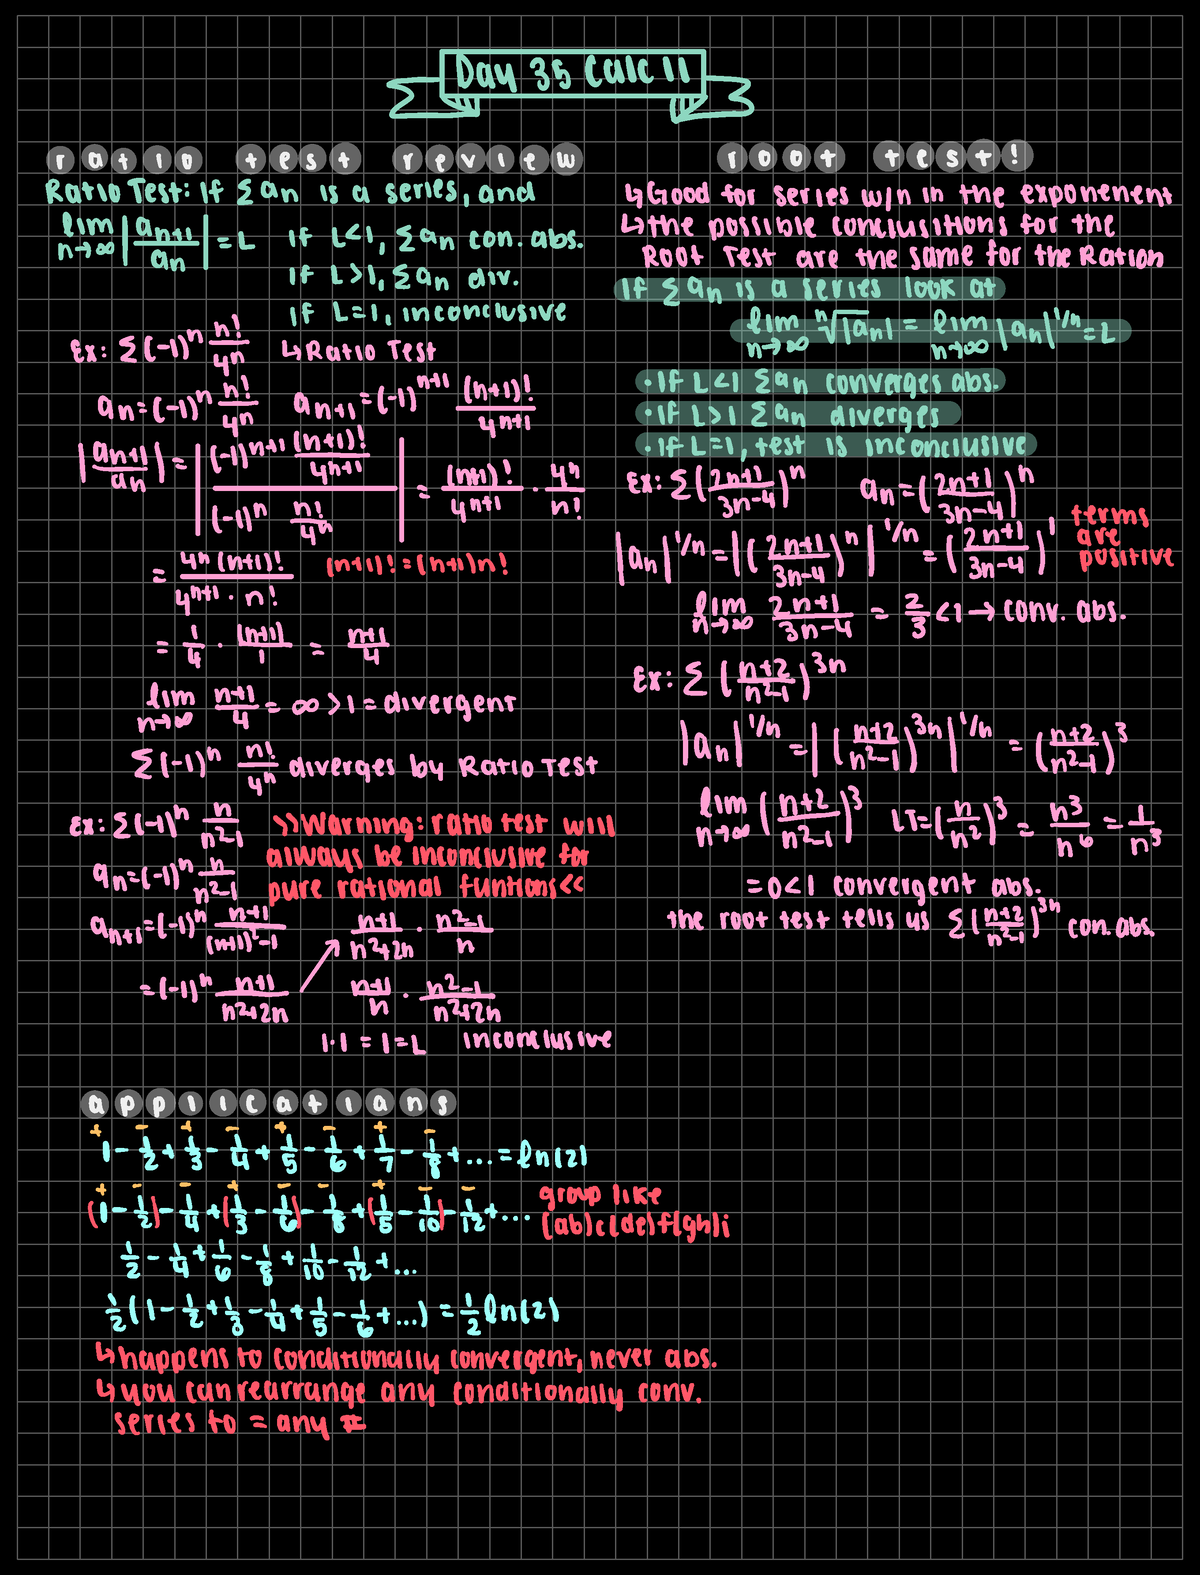 Day 35 Calc II
ratio test review
Ratio Test: If Σan is a series, and
lim n→∞ |an+1/an| = L If L<1, Σan con. abs.
If L>1, Σan div.
If L=1, inconclusive
Ex: Σ(-1)^n n!/4^n ↳Ratio Test
an=(-1)^n n!/4^n an+1=(-1)^n+1 (n+1)!/4^n+1
|an+1/an| = |(-1)^n+1 (n+1)!/4^n+1 / (-1)^n n!/4^n| = (n+1)!/4^n+1 · 4^n/n!
= 4^n(n+1)!/4^n+1 · n! (n+1)! = (n+1)n!
= 1/4 · (n+1)/1 = n+1/4
lim n→∞ n+1/4 = ∞ > 1 = divergent
Σ(-1)^n n!/4^n diverges by Ratio Test
Ex: Σ(-1)^n n/n²-1 >>Warning: ratio test will
always be inconclusive for
pure rational funtions<<
an=(-1)^n n/n²-1
an+1=(-1)^n n+1/(n+1)²-1 n+1/n²+2n · n²-1/n
=(-1)^n n+1/n²+2n n+1/n · n²-1/n²+2n
1·1 = 1 = L inconclusive
root test!
↳Good for series w/n in the exponenent
↳the possible conclusitions for the
Root Test are the same for the Ration
If Σan is a series look at
lim n→∞ ⁿ√|an| = lim n→∞ |an|^1/n = L
·If L<1 Σan converges abs.
·If L>1 Σan diverges
·If L=1, test is inconclusive
Ex: Σ(2n+1/3n-4)^n an=(2n+1/3n-4)^n
terms
are
positive
|an|^1/n = |(2n+1/3n-4)^n|^1/n = (2n+1/3n-4)^1
lim n→∞ 2n+1/3n-4 = 2/3 <1 → conv. abs.
Ex: Σ(n+2/n²-1)^3n
|an|^1/n = |(n+2/n²-1)^3n|^1/n = (n+2/n²-1)^3
lim n→∞ (n+2/n²-1)^3 LT=(n/n²)^3 = n³/n⁶ = 1/n³
= 0<1 convergent abs.
the root test tells us Σ(n+2/n²-1)^3n con. abs.
applicatians
+ - + - + - + -
1 - 1/2 + 1/3 - 1/4 + 1/5 - 1/6 + 1/7 - 1/8 + ... = ln(2)
+ - - + - - + - -
(1 - 1/2) - 1/4 + (1/3 - 1/6) - 1/8 + (1/5 - 1/10) - 1/12 + ... group like
(ab)c(de)f(gh)i
1/2 - 1/4 + 1/6 - 1/8 + 1/10 - 1/12 + ...
1/2(1 - 1/2 + 1/3 - 1/4 + 1/5 - 1/6 + ...) = 1/2 ln(2)
↳happens to conditionally convergent, never abs.
↳you can rearrange any conditionally conv.
series to = any #